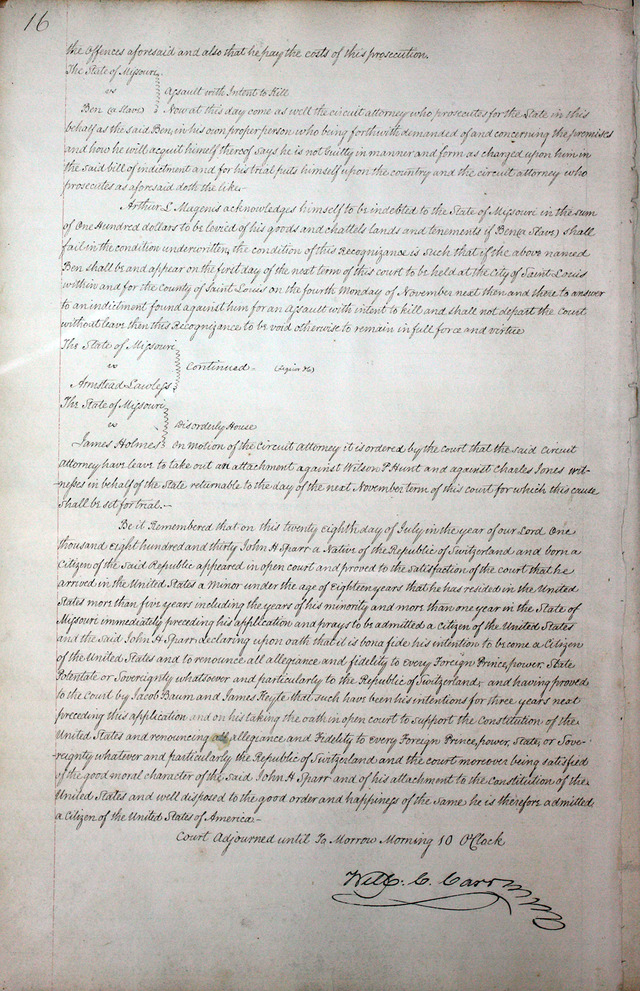 16
the Offences aforesaid and also that he pay the costs of this prosecution.
The State of Missouri
vs Assault with Intent to Kill
Ben (a Slave) Now at this day come as well the circuit attorney who prosecutes for the State in this
behalf as the said Ben, in his own proper person who being forthwith demanded of and concerning the premises
and how he will acquit himself thereof says he is not Guilty in manner and form as charged upon him in
the said bill of indictment and for his trial puts himself upon the country and the circuit attorney who
prosecutes as aforesaid doth the like.
Arthur L Magenis acknowledges himself to be indebted to the State of Missouri in the sum
of One Hundred dollars to be levied of his goods and chattels lands and tenements if Ben (a Slave) shall
fail in the condition underwritten, the condition of this Recognizance is such that if the above named
Ben shall be and appear on the first day of the next term of this court to be held at the City of Saint Louis
within and for the county of Saint Louis on the fourth Monday of November next then and there to answer
to an indictment found against him for an Assault with intent to kill and shall not depart the Court
without leave then this Recognizance to be void otherwise to remain in full force and virtue
The State of Missouri
vs Continued
Armstead Lawless
The State of Missouri
vs Disorderly House
James Holmes On motion of the Circuit Attorney it is ordered by the court that the said Circuit
Attorney have leave to take out an attachment against Wilson P. Hunt and against Charles Jones wit-
nesses in behalf of the State returnable to the day of the next November term of this court for which this cause
shall be set for trial.
Be it Remembered that on this twenty eighth day of July in the year of our Lord One
thousand Eight hundred and thirty John H Sparr a Native of the Republic of Switzerland and born a
Citizen of the said Republic appeared in open court and proved to the satisfaction of the court that he
arrived in the United States a Minor under the age of Eighteen years that he has resided in the United
States more than five years including the years of his minority and more than one year in the State of
Missouri immediately preceding his application and prays to be admitted a Citizen of the United States
and the said John H Sparr declaring upon oath that it is bona fide his intention to become a Citizen
of the United States and to renounce all allegiance and fidelity to every Foreign Prince, power, State
Potentate or Sovereignty whatsoever and particularly to the Republic of Switzerland, and having proved
to the Court by Jacob Baum and James Heyle that such have been his intentions for three years next
preceding this application and on his taking the oath in open court to support the Constitution of the
United States and renouncing all allegiance and Fidelity to Every Foreign Prince, power, State, or Sove-
reignty whatever and particularly the Republic of Switzerland and the court moreover being satisfied
of the good moral character of the said John H Sparr and of his attachment to the Constitution of the
United States and well disposed to the good order and happiness of the same he is therefore admitted
a Citizen of the United States of America.
Court Adjourned until To Morrow Morning 10 O'Clock
Will: C. Carr